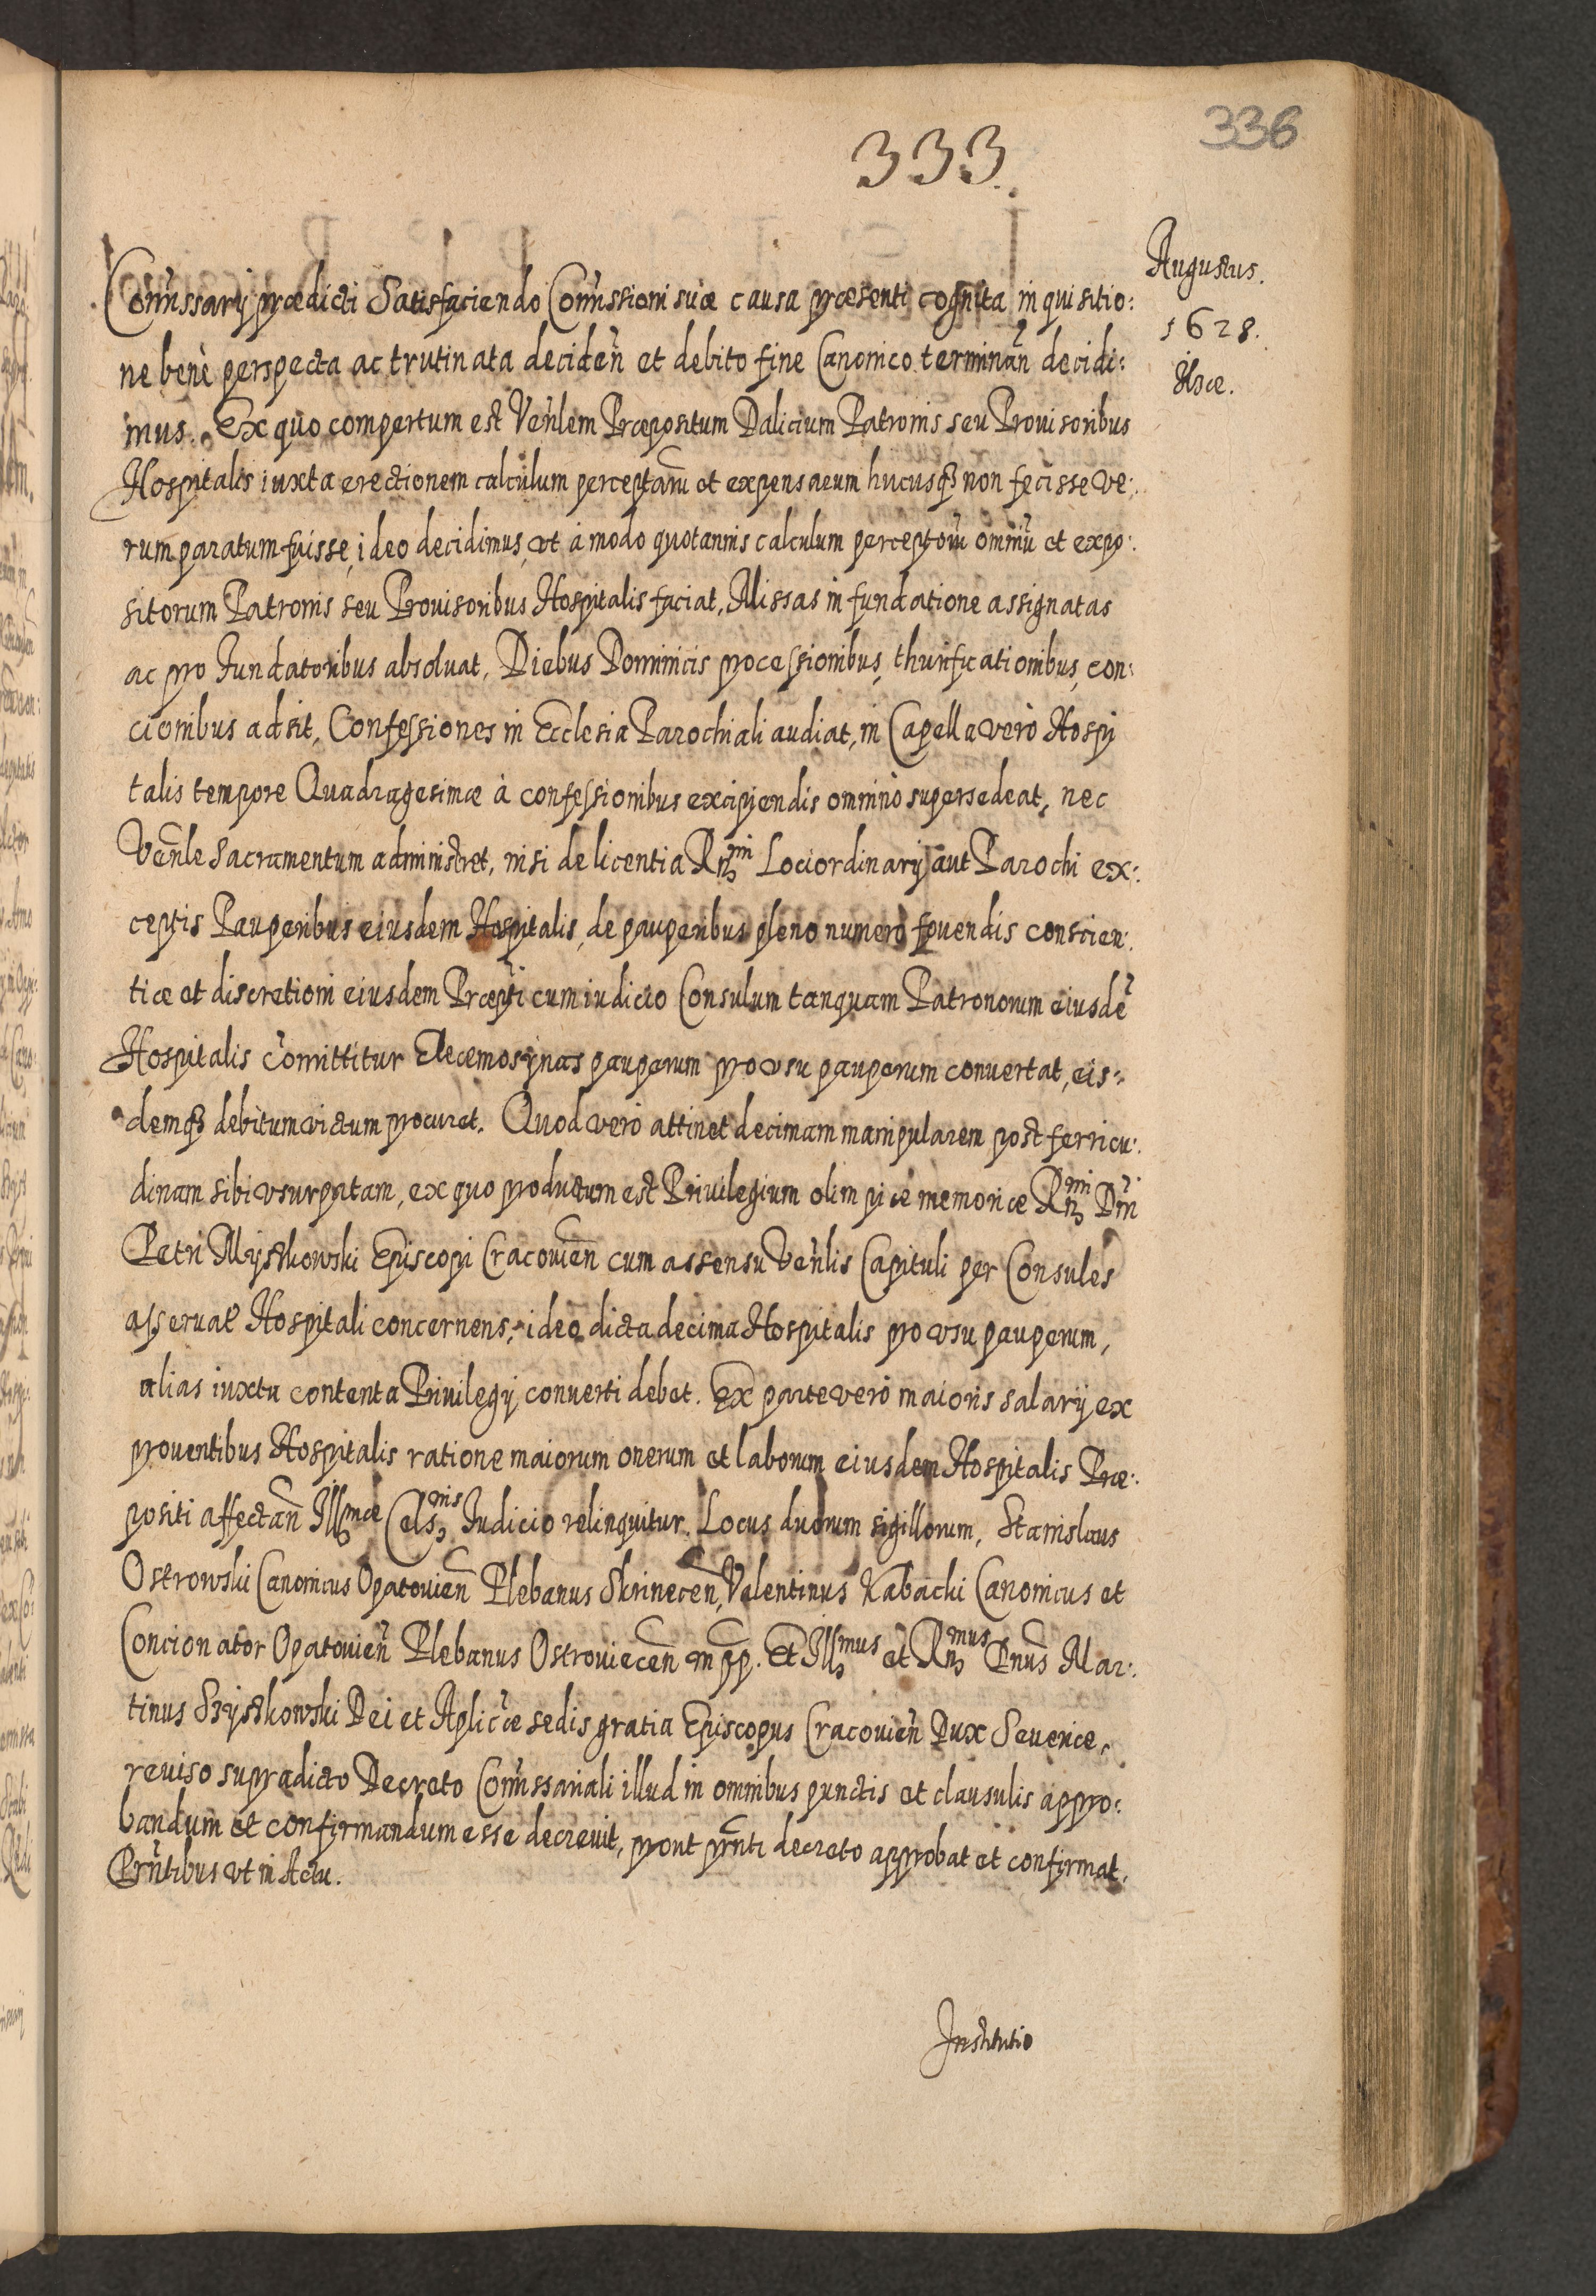 336
333.
Augustus.
1628.
Ilzae.
Com̃issarij praedicti Satisfaciendo Com̃issioni suae causa praesenti cognita inquisitio:
ne benè perspecta ac trutinata deciden̄ et debito fine Canonico terminan̄ decidi:
mus. Ex quo compertum est Ven̄lem Praepositum Dalicium Patronis seu Prouisoribus
Hospitalis iuxta erectionem calculum perceptarū et expensarum hucusq₃ non fecisse ve:
rum paratum fuisse, ideo decidimus, vt à modo quotannis calculum perceptorū omniū et expo:
sitorum Patronis seu Prouisoribus Hospitalis faciat, Missas in fundatione assignatas
ac pro Fundatoribus absoluat, Diebus Dominicis processionibus, thurificationibus, con:
cionibus adsit, Confessiones in Ecclesia Parochiali audiat, in Capella verò Hospi
talis tempore Quadragesimae à confessionibus excipiendis omninò supersedeat, nec
Ven̄le Sacramentum administret, nisi de licentia Rn̄mi Lociordinarij aut Parochi ex:
ceptis Pauperibus eiusdem Hospitalis, de pauperibus pleno numerò fouendis conscien:
tiae et discretioni eiusdem Praep̃ti cum iudicio Consulum tanquam Patronorum eiusdē
Hospitalis com̄ittitur Eleemosynas pauperum pro vsu pauperum conuertat, eis:
demq₃ debitum victum procuret. Quod verò attinet decimam manipularem post ferricu:
dinam sibi vsurpatam, ex quo productum est Priuilegium olim piae memoriae Rn̄mi Dn̄i
Petri Myszkowski Episcopi Cracouien̄ cum assensu Ven̄lis Capituli per Consules
asseruat̃ Hospitali concernens, ideo dicta decima Hospitalis pro vsu pauperum,
alias iuxta contenta Priuilegij conuerti debet. Ex parte verò maioris salarij ex
prouentibus Hospitalis ratione maiorum onerum et laborum eiusdem Hospitalis Prae:
positi affectan̄ Illmae Celsnis Iudicio relinquitur. Locus duorum sigillorum, Stanislaus
Ostrowski Canonicus Opatouien̄ Plebanus Skrinecen̄, Valentinus Kabacki Canonicus et
Concionator Opatouien̄ Plebanus Ostrouiecen̄ m̄pp. Et Illmus et Rn̄mus Dn̄us Mar:
tinus Szyszkowski Dei et Ap̄licae sedis gratia Episcopus Cracouien̄ Dux Seueriae,
reuiso supradicto Decreto Com̄issariali illud in omnibus punctis et clausulis appro:
bandum et confirmandum esse decreuit, prout prn̄ti decreto approbat et confirmat.
Prn̄tibus vt in Actu.
Institutio